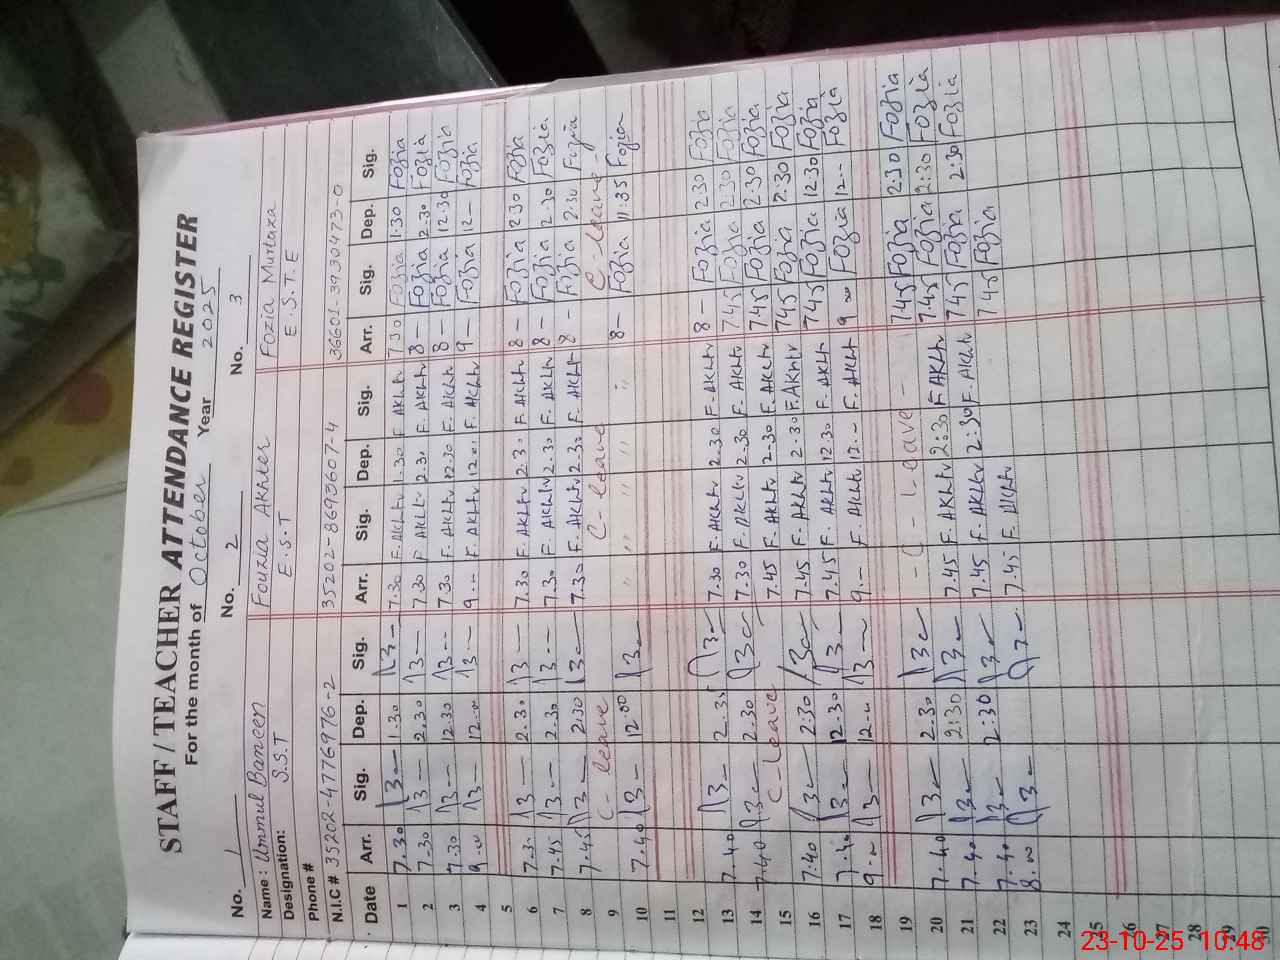 STAFF / TEACHER ATTENDANCE REGISTER
For the month of October Year 2025
No. 1 No. 2 No. 3
Name: Ummul Baneen Fouzia Akhter Fozia Murtaza
Designation: S.S.T E.S.T E.S.T.E
Phone #
N.I.C # 35202-4776976-2 35202-8693607-4 36601-3930473-0
Date Arr. Sig. Dep. Sig. Arr. Sig. Dep. Sig. Arr. Sig. Dep. Sig.
1 7.30 1.30 7.30 F. AKhtr 1.30 F. AKhtr 7 30 Fozia 1:30 Fozia
2 7.30 2.30 7.30 F AKhtr 2.30 F. AKhtr 8 — Fozia 2.30 Fozia
3 7.30 12.30 7.30 F. AKhtr 12.30 F. AKhtr 8 — Fozia 12.30 Fozia
4 9.00 12.00 9.- F. AKhtr 12.00 F. AKhtr 9 — Fozia 12 — Fozia
5
6 7.30 2.30 7.30 F. AKhtr 2.30 F. AKhtr 8 — Fozia 2:30 Fozia
7 7.45 2.30 7.30 F. AKhtr 2.30 F. AKhtr 8 — Fozia 2.30 Fozia
8 7.45 2:30 7.30 F. AKhtr 2.30 F. AKhtr 8 — Fozia 2:30 Fozia
9 C- leave C- leave C- leave
10 7.40 12.00 " " " " " 8 — Fozia 11:35 Fozia
11
12
13 7.40 2.35 7.30 F. AKhtr 2.30 F. AKhtr 8 — Fozia 2.30 Fozia
14 7.40 2.30 7.30 F. AKhtr 2.30 F. AKhtr 7.45 Fozia 2.30 Fozia
15 C-leave 7.45 F. AKhtr 2.30 F. AKhtr 7.45 Fozia 2:30 Fozia
16 7.40 2:30 7.45 F. AKhtr 2.30 F. AKhtr 745 Fozia 2:30 Fozia
17 7.40 12.30 7.45 F. AKhtr 12.30 F. AKhtr 745 Fozia 12.30 Fozia
18 9.00 12.00 9.- F. AKhtr 12.- F. AKhtr 9 00 Fozia 12 -- Fozia
19
20 7.40 2.30 - C - Leave - 7.45 Fozia 2:30 Fozia
21 7.40 2:30 7.45 F. AKhtr 2:30 F. AKhtr 7.45 Fozia 2:30 Fozia
22 7.40 2:30 7.45 F. AKhtr 2:30 F. AKhtr 745 Fozia 2:30 Fozia
23 8.00 7.45 F. AKhtr 745 Fozia
24
25
26
27
28
29
30
23-10-25 10:48